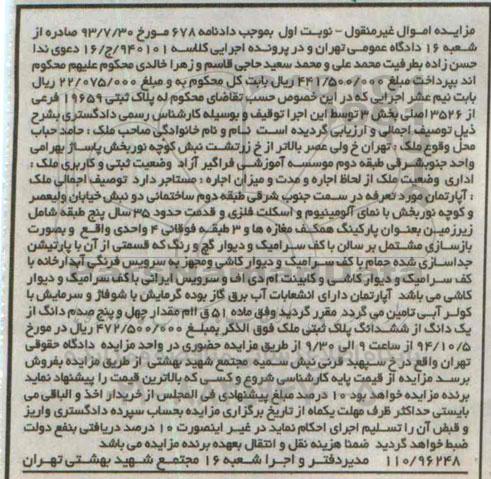 مزایده اموال غیرمنقول - نوبت اول بموجب دادنامه ۶۷۸ مورخ ۹۳/۷/۳۰ صادره از
شعبه ۱۶ دادگاه عمومی تهران و در پرونده اجرایی کلاسه ۹۴۰۱۰۱/ج/۱۶ دعوی ندا
حسن زاده بطرفیت محمد علی و محمد سعید حاجی قاسم و زهرا خالدی محکوم علیهم محکوم
اند بپرداخت مبلغ ۴۴۱/۵۰۰/۰۰۰ ریال بابت کل محکوم به و مبلغ ۲۲/۰۷۵/۰۰۰ ریال
بابت نیم عشر اجرایی که در این خصوص حسب تقاضای محکوم له پلاک ثبتی ۱۹۶۵۹ فرعی
از ۳۵۲۶ اصلی بخش ۳ توسط این اجرا توقیف و بوسیله کارشناس رسمی دادگستری بشرح
ذیل توصیف اجمالی و ارزیابی گردیده است نام و نام خانوادگی صاحب ملک : حامد حباب
محل وقوع ملک : تهران خ ولی عصر بالاتر از خ زرتشت نبش کوچه نوربخش پاساژ بهرامی
واحد جنوبشرقی طبقه دوم موسسه آموزشی فراگیر آراد وضعیت ثبتی و کاربری ملک :
اداری وضعیت ملک از لحاظ اجاره و مدت و میزان اجاره : مستاجر دارد توصیف اجمالی ملک
: آپارتمان مورد تعرفه در سمت جنوب شرقی طبقه دوم ساختمانی دو نبش خیابان ولیعصر
و کوچه نوربخش با نمای آلومینیوم و اسکلت فلزی و قدمت حدود ۳۵ سال پنج طبقه شامل
زیرزمین بعنوان پارکینگ همکف مغازه ها و ۳ طبقه فوقانی ۴ واحدی واقع و بصورت
بازسازی مشتمل بر سالن با کف سرامیک و دیوار گچ و رنگ که قسمتی از آن با پارتیشن
جداسازی شده حمام با کف سرامیک و دیوار کاشی ومجهز به سرویس فرنگی آبدارخانه با
کف سرامیک و دیوار کاشی و کابینت ام دی اف و سرویس ایرانی با کف سرامیک و دیوار
کاشی می باشد آپارتمان دارای انشعابات آب برق گاز بوده گرمایش با شوفاژ و سرمایش با
کولر آبی تامین می گردد مقرر گردید وفق ماده ۵۱ ق اام مقدار چهل و پنج صدم دانگ از
یک دانگ از ششدانگ پلاک ثبتی ملک فوق الذکر بمبلغ ۴۷۲/۵۰۰/۰۰۰ ریال در مورخ
۹۴/۱۰/۵ از ساعت ۹ الی ۹/۳۰ از طریق مزایده حضوری در واحد مزایده دادگاه حقوقی
تهران واقع در خ سپهبد قرنی نبش سمیه مجتمع شهید بهشتی از طریق مزایده بفروش
برسد مزایده از قیمت پایه کارشناسی شروع و کسی که بالاترین قیمت را پیشنهاد نماید
برنده مزایده خواهد بود ۱۰ درصد مبلغ پیشنهادی فی المجلس از خریدار اخذ و الباقی می
بایستی حداکثر ظرف مهلت یکماه از تاریخ برگزاری مزایده بحساب سپرده دادگستری واریز
و قبض آن را تسلیم اجرای احکام نماید در غیر اینصورت ۱۰ درصد دریافتی بنفع دولت
ضبط خواهد گردید ضمنا هزینه نقل و انتقال بعهده برنده مزایده می باشد
۱۱۰/۹۶۲۴۸ مدیردفتر و اجرا شعبه ۱۶ مجتمع شهید بهشتی تهران